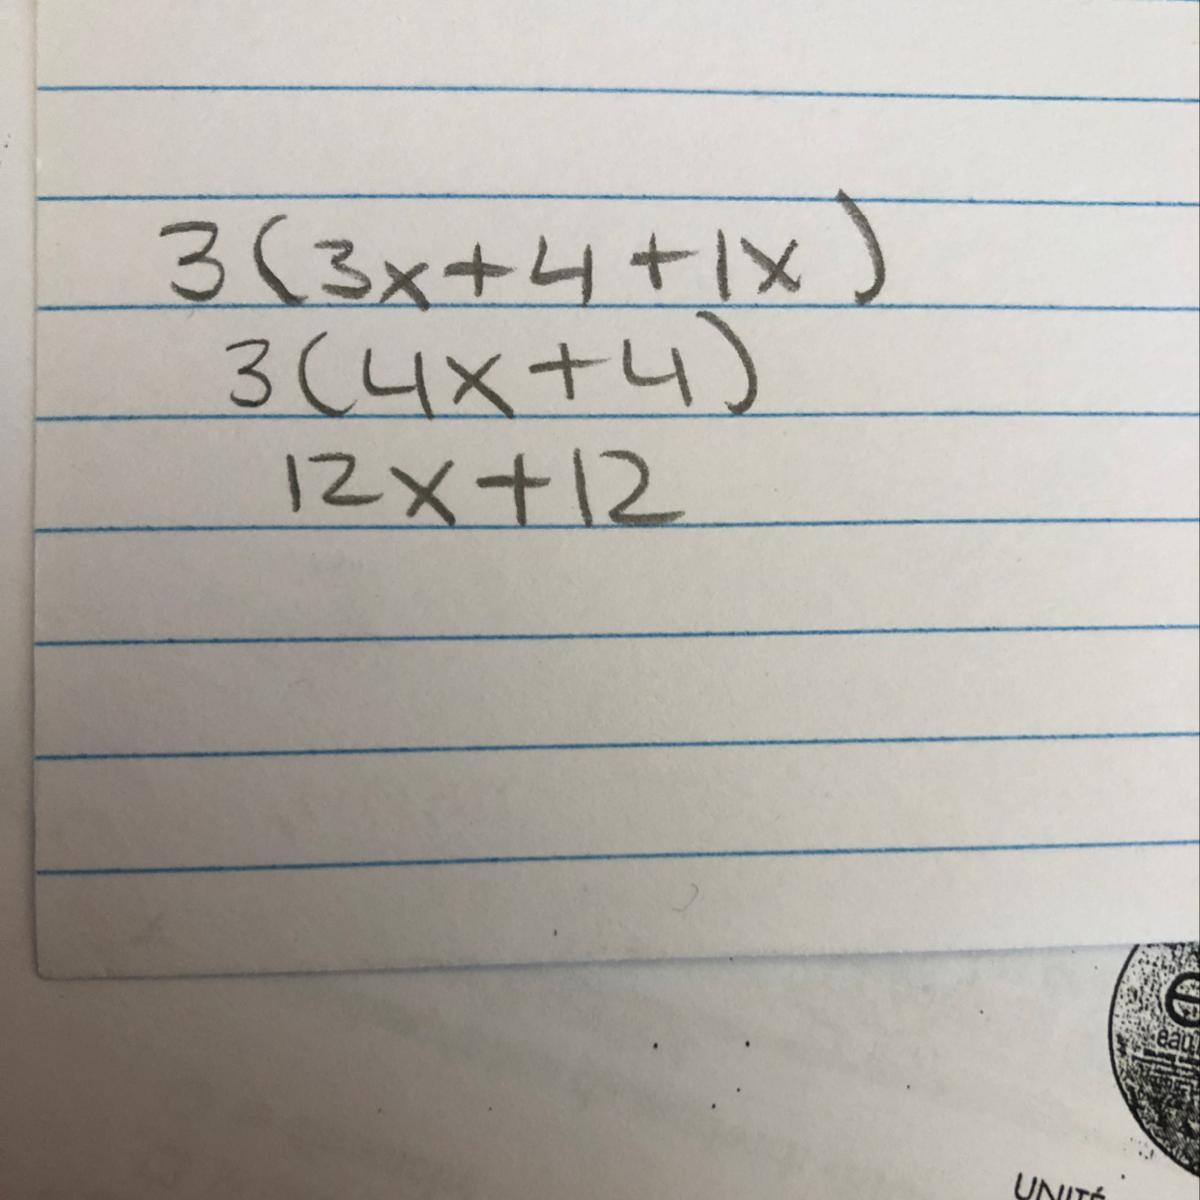 3(3x+4+1x)
3(4x+4)
12x+12
e
eau
UNITÉ